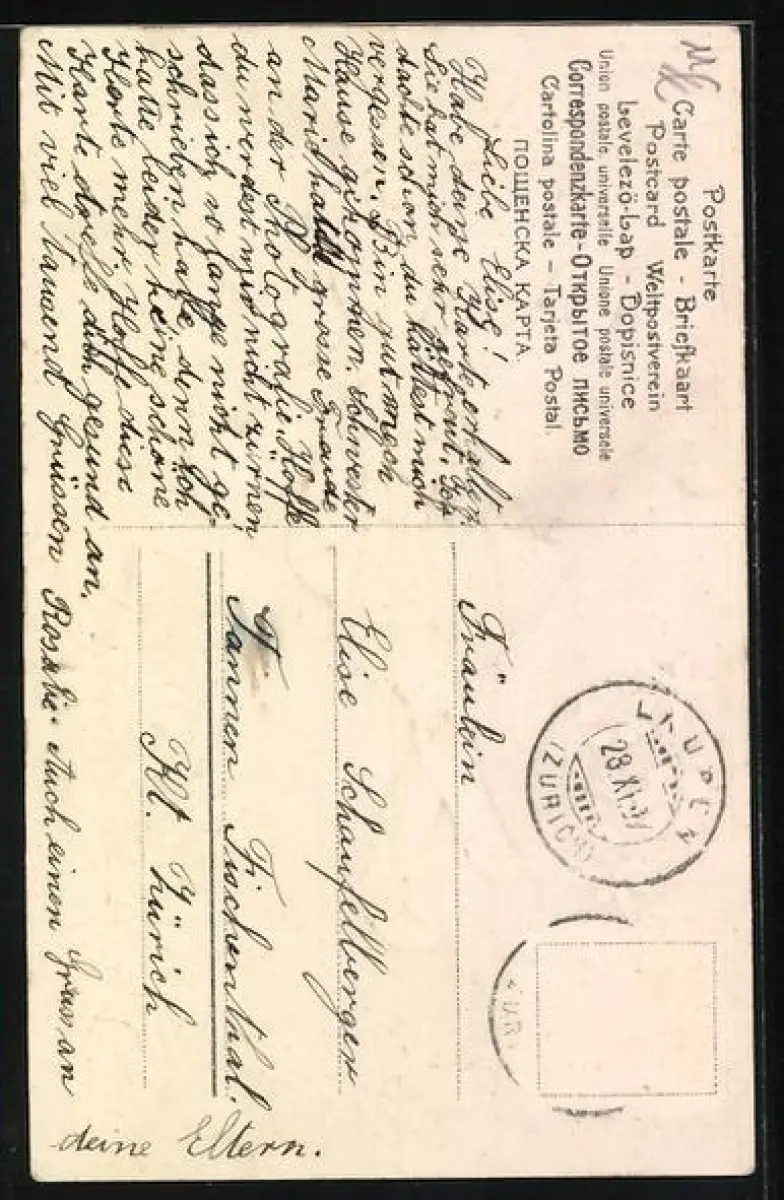 Postkarte
Carte postale - Briefkaart
Postcard Weltpostverein
Levelező-Lap - Dopisnice
Union postale universelle Unione postale universale
Correspondenzkarte - Открытое письмо
Cartolina postale - Tarjeta Postal.
ПОЩЕНСКА КАРТА
Liebe Elise!
Habe deine Karte erhalten.
Sie hat mich sehr gefreut, Ich
dachte schon, du hättest mich
vergessen. Bin gut nach
Hause gekommen. Schwester
Marie hatte grosse Freude
an der Photografie. Hoffe
du werdest mir nicht zürnen
dass ich so lange nicht ge-
schrieben habe, denn ich
hatte leider keine schöne
Karte mehr. Hoffe diese
Karte treffe dich gesund an.
Mit viel tausend Grüssen Rosalie. Auch einen Gruss an
deine Eltern.
LAUPEN
(ZÜRICH)
28.XI.07
Fräulein
Elise Schaufelberger
Tannen Fischenthal.
Kt. Zürich